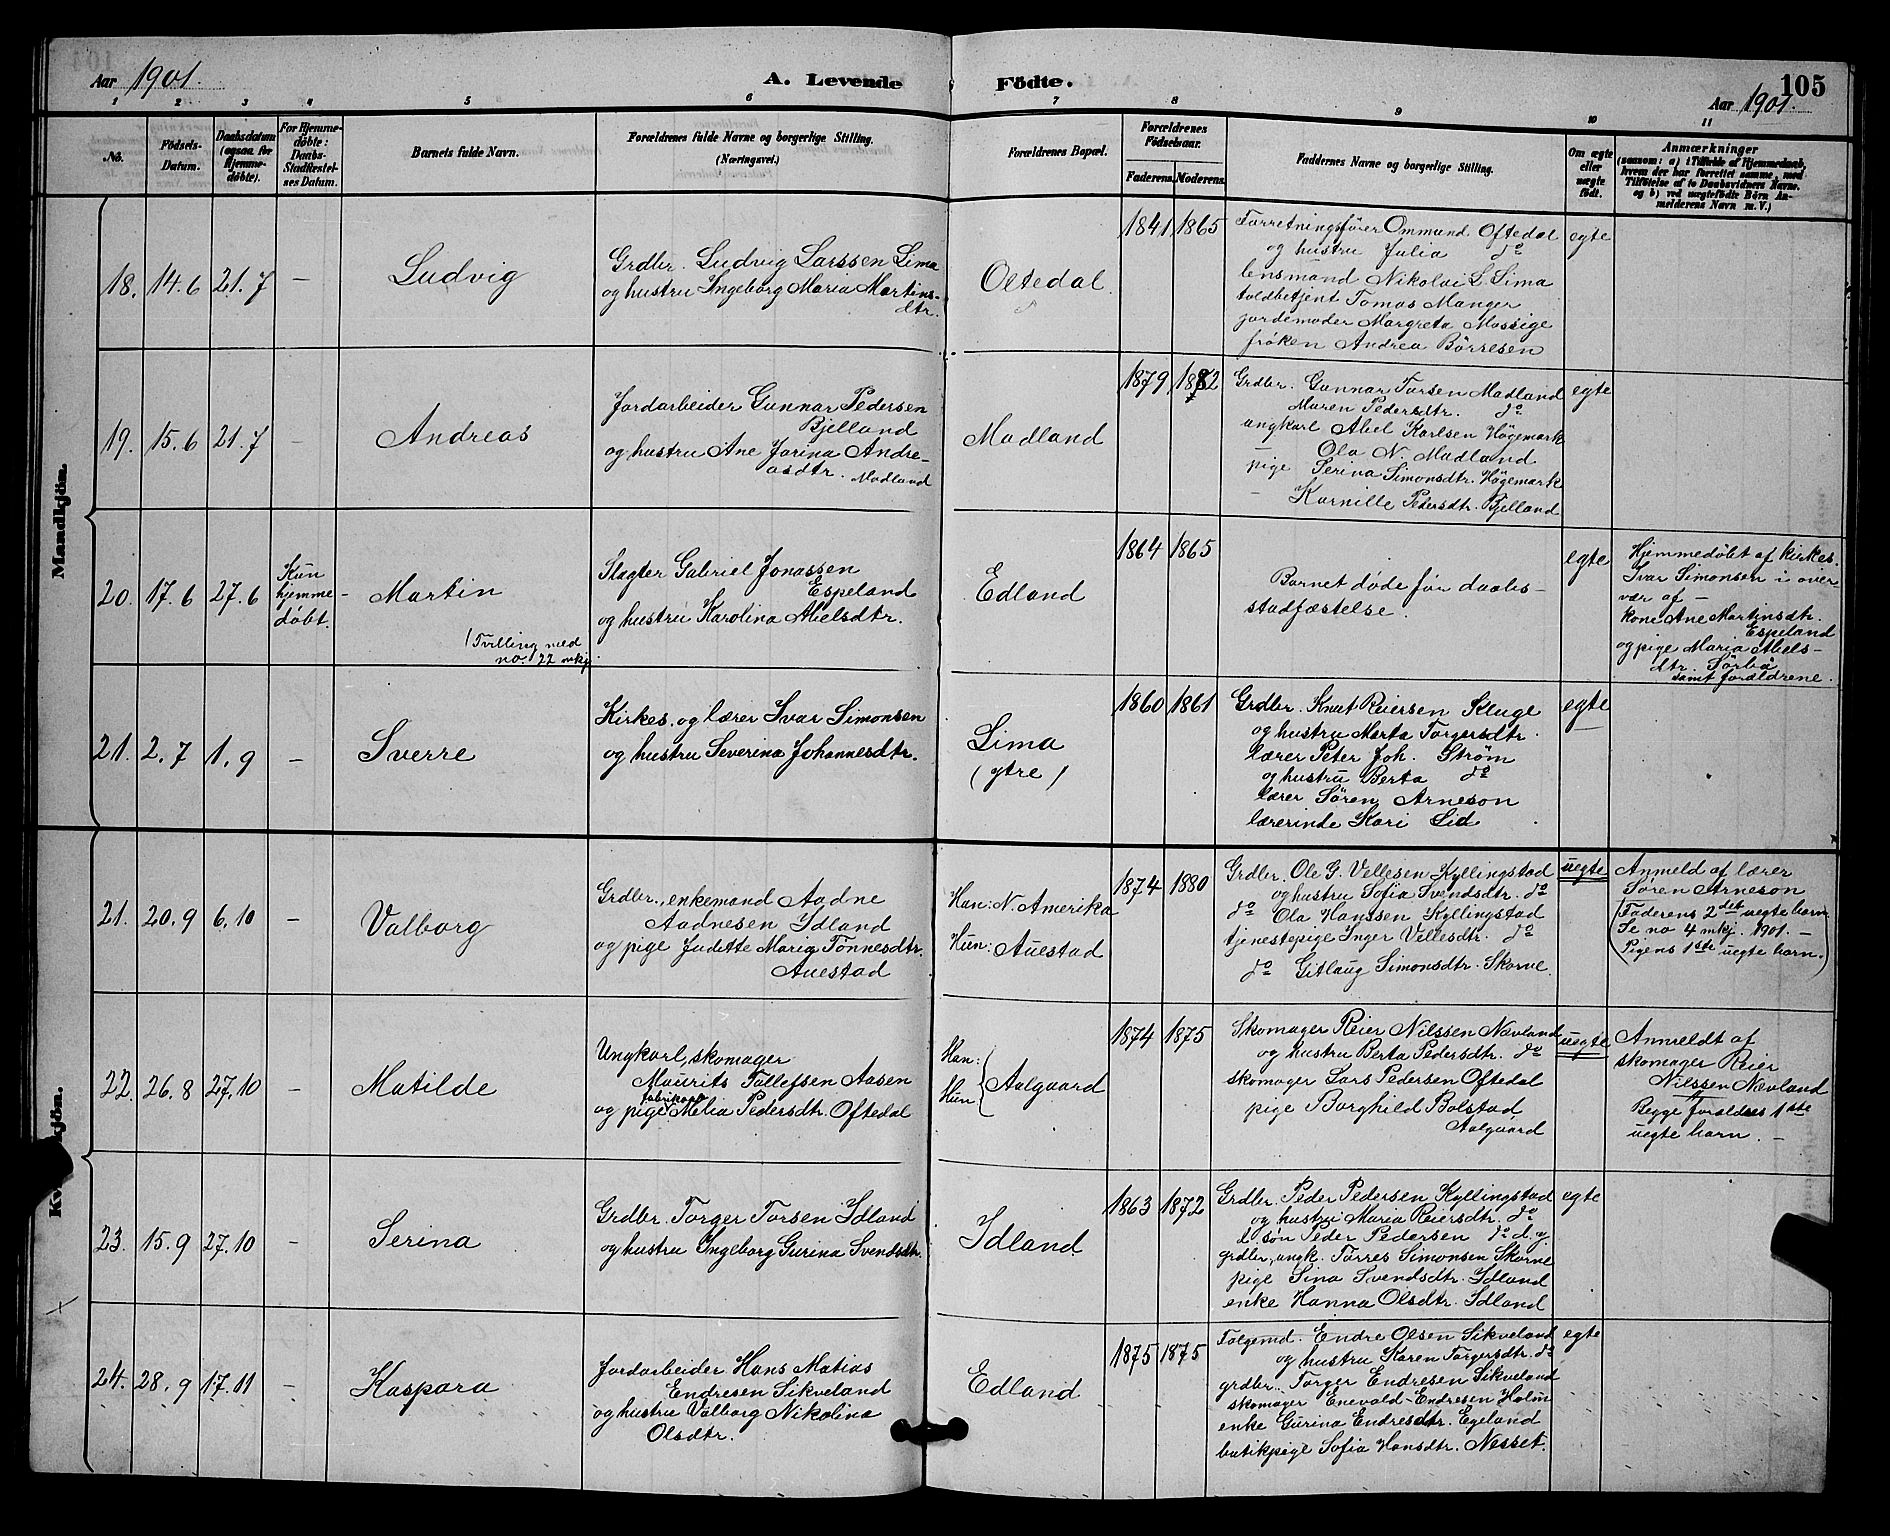 Aar 1901.
A. Levende Födte.
105
Aar 1901.
1 2 3 4 5 6 7 8 9 10 11
No.
Födsels-Datum.
Daabsdatum (ogsaa for Hjemme-döbte).
For Hjemme-döbte: Daabs-Stadfæstel-ses Datum.
Barnets fulde Navn.
Forældrenes fulde Navne og borgerlige Stilling.
(Næringsvei.)
Forældrenes Bopæl.
Forældrenes Födselsaar.
Faderens. Moderens.
Faddernes Navne og borgerlige Stilling.
Om ægte eller uægte födt.
Anmærkninger
(saasom: a) i Tilfælde af Hjemmedaab,
hvem der har forrettet samme, med
Tilföielse af to Daabsvidners Navne.
og b) ved uægtefödte Börn An-
melderens Navn m. V.)
Mandkjön.
18. 14.6 21.7 –
Ludvig
Grdbr. Ludvig Larssen Lima
og hustru Ingeborg Maria Martins-
dtr.
Oltedal
1841 1865
Forretningsfører Ommund Oftedal
og hustru Julia do
lensmand Nikolai L. Lima
toldbetjent Tomas Manger
jordemoder Margreta Mossige
frøken Andrea Börresen
egte
19. 15.6 21.7 –
Andreas
Jordarbeider Gunnar Pedersen
Bjelland
og hustru Ane Jorina Andre-
asdtr. Madland
Madland
1879 1882
Grdbr. Gunnar Torsen Madland
Maren Pedersdtr. do
ungkarl Abel Karlsen Høgemark
Ola N. Madland
pige Serina Simonsdtr. Høgemark
– Kornille Pedersdtr. Bjelland
egte
20. 17.6 27.6
Kun
hjemme-
døbt.
Martin
(Tvilling med
no. 22 mkj.
Slagter Gabriel Jonassen
Espeland
og hustru Karolina Abelsdtr.
Edland
1864 1865
Barnet døde før daabs-
stadfæstelse.
egte
Hjemmedøbt af kirkes.
Ivar Simonsen i over-
vær af –
kone Ane Martinsdtr.
Espeland
og pige Maria Abels-
dtr. Sörbö
samt forældrene.
21. 2.7 1.9 –
Sverre
Kirkes. og lærer Ivar Simonsen
og hustru Severina Johannesdtr.
Lima
(ytre)
1860 1861
Grdbr. Knut Reiersen Kluge
og hustru Marta Torgersdtr.
lærer Peter Joh. Strøm
og hustru Berta do
lærer Sören Arneson
lærerinde Kari Lid
egte
21. 20.9 6.10 –
Valborg
Grdbr., enkemand Aadne
Aadnesen Idland
og pige Judette Maria Tönnesdtr.
Auestad
Han: N. Amerika
Hun: Auestad
1874 1880
Grdbr. Ole G. Vellesen Kyllingstad
og hustru Sofia Svendsdtr. do
do Ola Hanssen Kyllingstad
tjenestepige Inger Vellesdtr. do
do Gitlaug Simonsdtr. Skorne.
uegte
Anmeld af lærer
Sören Arneson
(Faderens 2det uegte barn
Se no 4 mkj. 1901. –
Pigens 1ste uegte barn.)
22. 26.8 27.10 –
Matilde
Ungkarl, skomager
Maurits Tollefsen Aasen
fabriksar.
og pige Melia Pedersdtr. Oftedal
Han:
Hun
Aalgaard
1874 1875
Skomager Reier Nilssen Nævland
og hustru Berta Pedersdtr. do
skomager Lars Pedersen Oftedal
pige Borghild Bolstad
Aalgaard
uegte
Anmeldt af
skomager Reier
Nilssen Nævland
Begge foraldres 1ste
uegte barn. –
23. 15.9 27.10 –
Serina
Grdbr. Torger Torsen Idland
og hustru Ingeborg Gurina Svendsdtr.
Idland
1863 1872
Grdbr. Peder Pedersen Kyllingstad
og hustru Maria Reiersdtr. do
d. søn Peder Pedersen do d. y.
grdbr., ungk. Torres Simonsen Skorne
pige Sina Svendsdtr. Idland
enke Hanna Olsdtr. Idland
egte
24. 28.9 17.11 –
Kaspara
Jordarbeider Hans Matias
Endresen Sikveland
og hustru Valborg Nikolina
Olsdtr.
Edland
1875 1875
Folgemd. Endre Olsen Sikveland
og hustru Karen Torgersdtr. do
grdbr. Torger Endresen Sikveland
skomager Enevald Endresen Holm
enke Gurina Endresdtr. Egeland
butikpige Sofia Hansdtr. Nesset.
egte